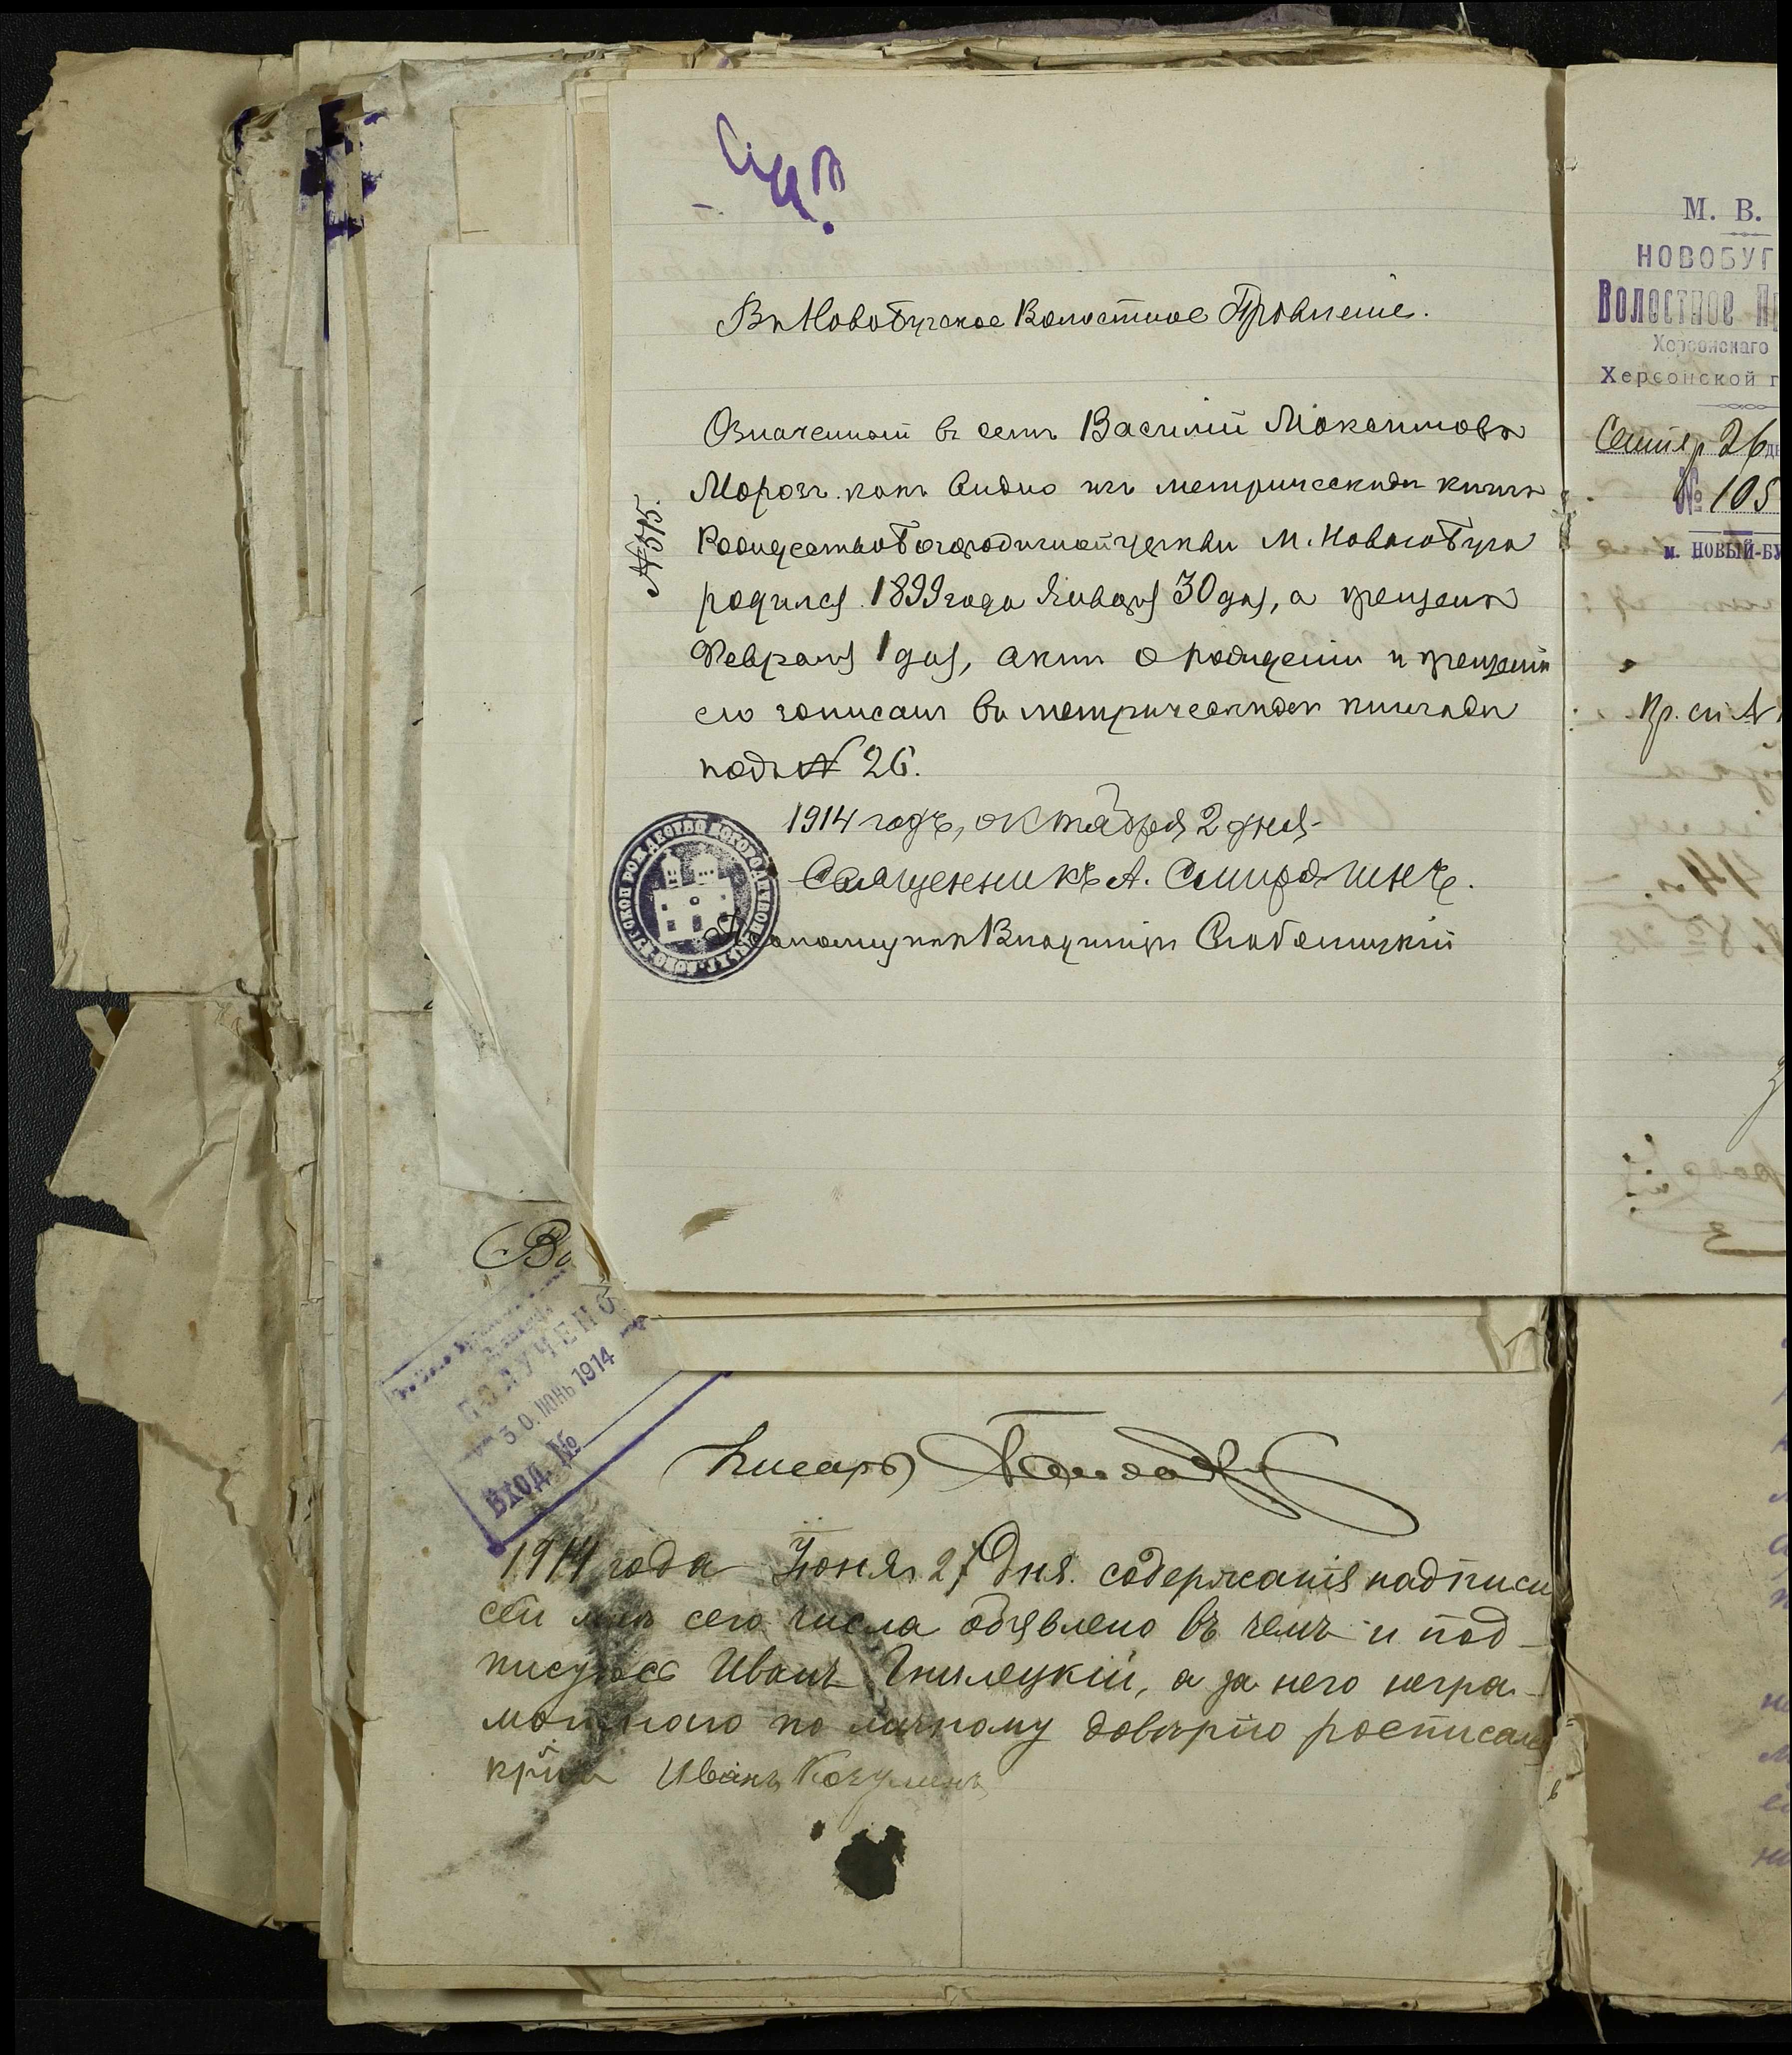 Въ Новобугское Волостное Правленіе.
Означенный въ семъ Василій Максимовъ
Морозъ какъ видно изъ метрическихъ книгъ
Рождество Богородичной церкви м. Новаго Буга
родился 1899 года Января 30 дня, а крещенъ
Февраля 1 дня, актъ о рожденіи и крещеніи
его записанъ въ метрическихъ книгахъ
подъ № 26.
1914 годъ, октября 2 дня
Священникъ А.
Псаломщикъ Владиміръ
№ 575.
М. В.
НОВОБУГ
Волостное П
Херсонскаго
Херсонской г
Сентяр 26 дн
№ 105
м. НОВЫЙ-БУ
Во
ПОЛУЧЕНО
30. ІЮНЬ 1914
Вход. №
Писарь
1914 года Іюня 27 Дня. содержанія надписи
сей мнѣ сего числа объявлено въ чемъ и под-
писуюсь Иванъ Гнилецкій, а за него негра-
мотнаго по личному довѣрію росписался
Иванъ